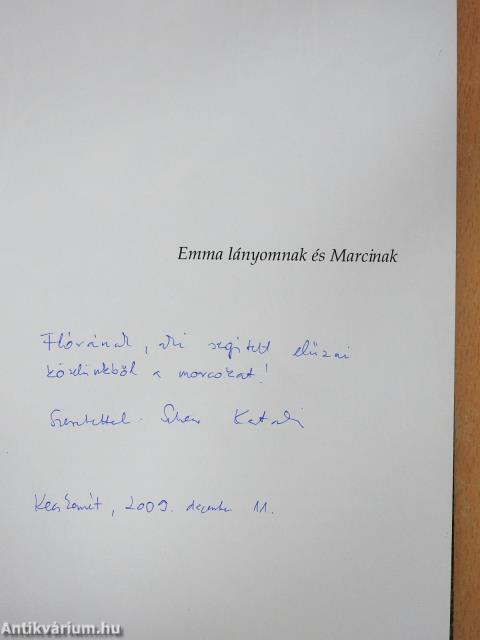 Emma lányomnak és Marcinak
Flórának, aki segített elűzni
közelünkből a morcokat!
Szeretettel Katalin
Kecskemét, 2009. december 11.
Antikvárium.hu